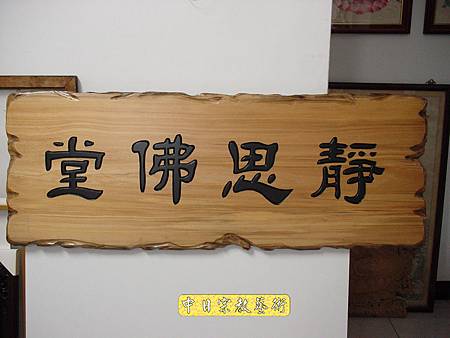 靜思佛堂
中日宗教藝術